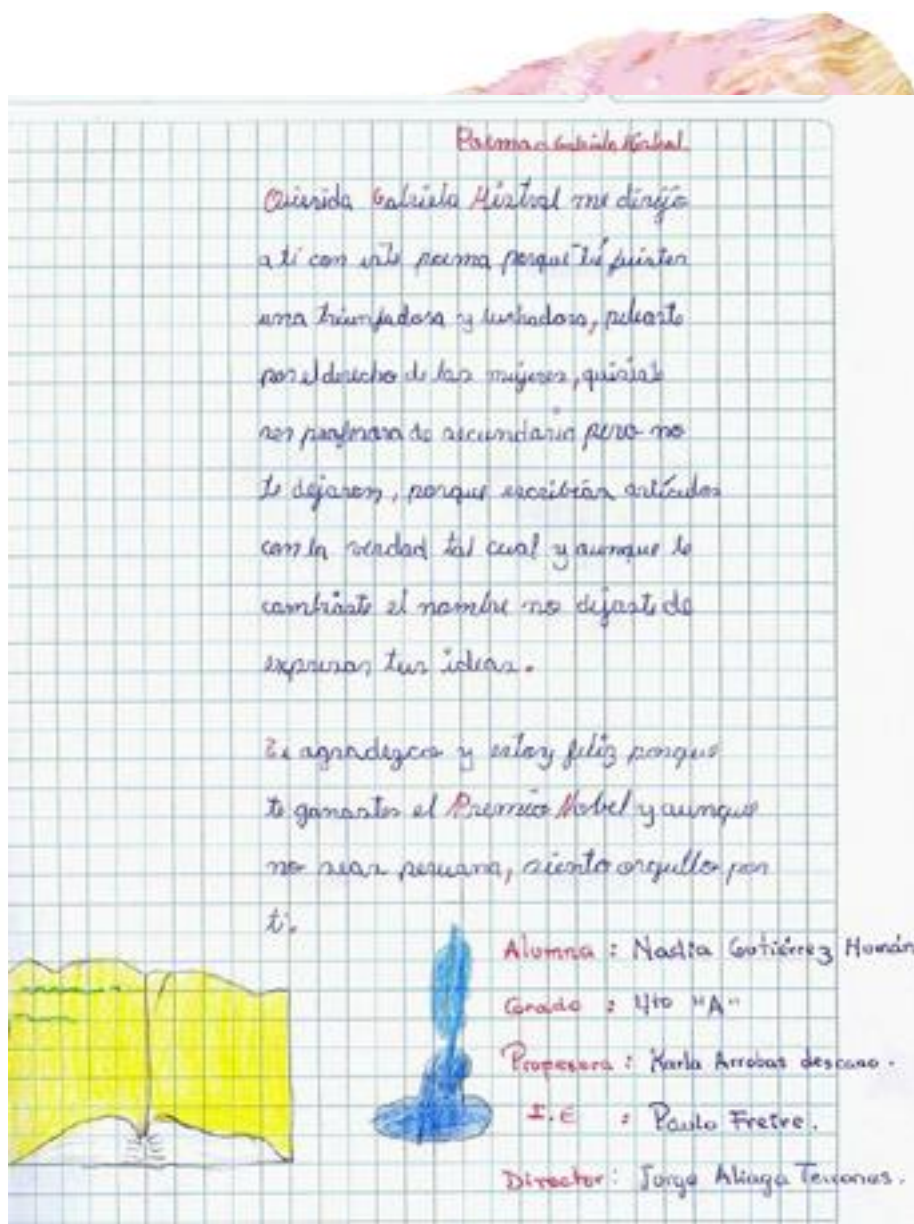 Poema a Gabriela Mistral
Querida Gabriela Mistral me dirijo
a ti con este poema porque tú fuistes
una triunfadora y luchadora, peleaste
por el derecho de las mujeres, quisiste
ser profesora de secundaria pero no
te dejaron, porque escribías artículos
con la verdad tal cual y aunque te
cambiaste el nombre no dejaste de
expresar tus ideas.
Te agradezco y estoy feliz porque
te ganastes el Premio Nobel y aunque
no seas peruana, siento orgullo por
ti.
Alumna : Nadia Gutiérrez Humán
Grado : 4to "A"
Profesora : Karla Arrobas descano.
I.E : Paulo Freire.
Director : Jorge Aliaga